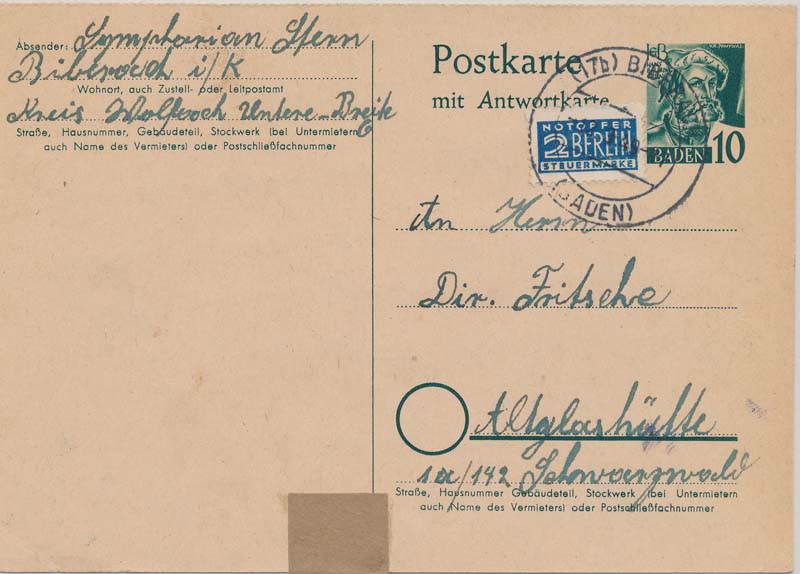 Absender: Symphorian Stern
Biberach i/K
Wohnort, auch Zustell- oder Leitpostamt
Kreis Wolfach Untere-Breite
Straße, Hausnummer, Gebäudeteil, Stockwerk (bei Untermietern
auch Name des Vermieters) oder Postschließfachnummer
Postkarte
mit Antwortkarte
NOTOPFER
2 BERLIN
STEUERMARKE
BADEN 10
(17b) BI
(BADEN)
An Herrn
Dir. Fritsche
Altglashütte
1a/142 Schwarzwald
Straße, Hausnummer Gebäudeteil, Stockwerk (bei Untermietern
auch Name des Vermieters) oder Postschließfachnummer